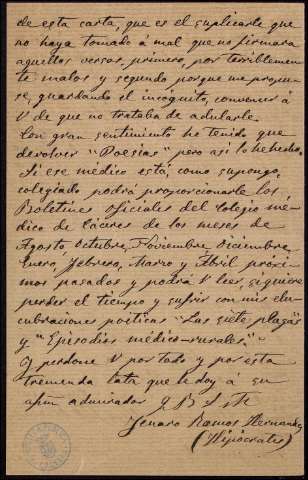 de esta carta, que es el suplicarle que
no haya tomado á mal que no firmara
aquellos versos, primero, por terriblemente
malos y segundo porque me propu-
se, guardando el incógnito, convencer á
V de que no trataba de adularle.
Con gran sentimiento he tenido que
devolver "Poesías" pero así lo he hecho.
Si ese médico está, como supongo,
colegiado podrá proporcionarle los
Boletines oficiales del Colegio mé-
dico de Cáceres de los meses de
Agosto, Octubre, Noviembre, Diciembre,
Enero, Febrero, Marzo y Abril próxi-
mos pasados y podrá V leer, si quiere
perder el tiempo y sufrir con mis elu-
cubraciones poéticas "Las siete plagas"
y "Episodios médico-rurales"
Y perdone V por todo y por esta
tremenda lata que le doy a su
afmo admirador q B s M
Jenaro Ramos Hernandez
(Hipócrates)